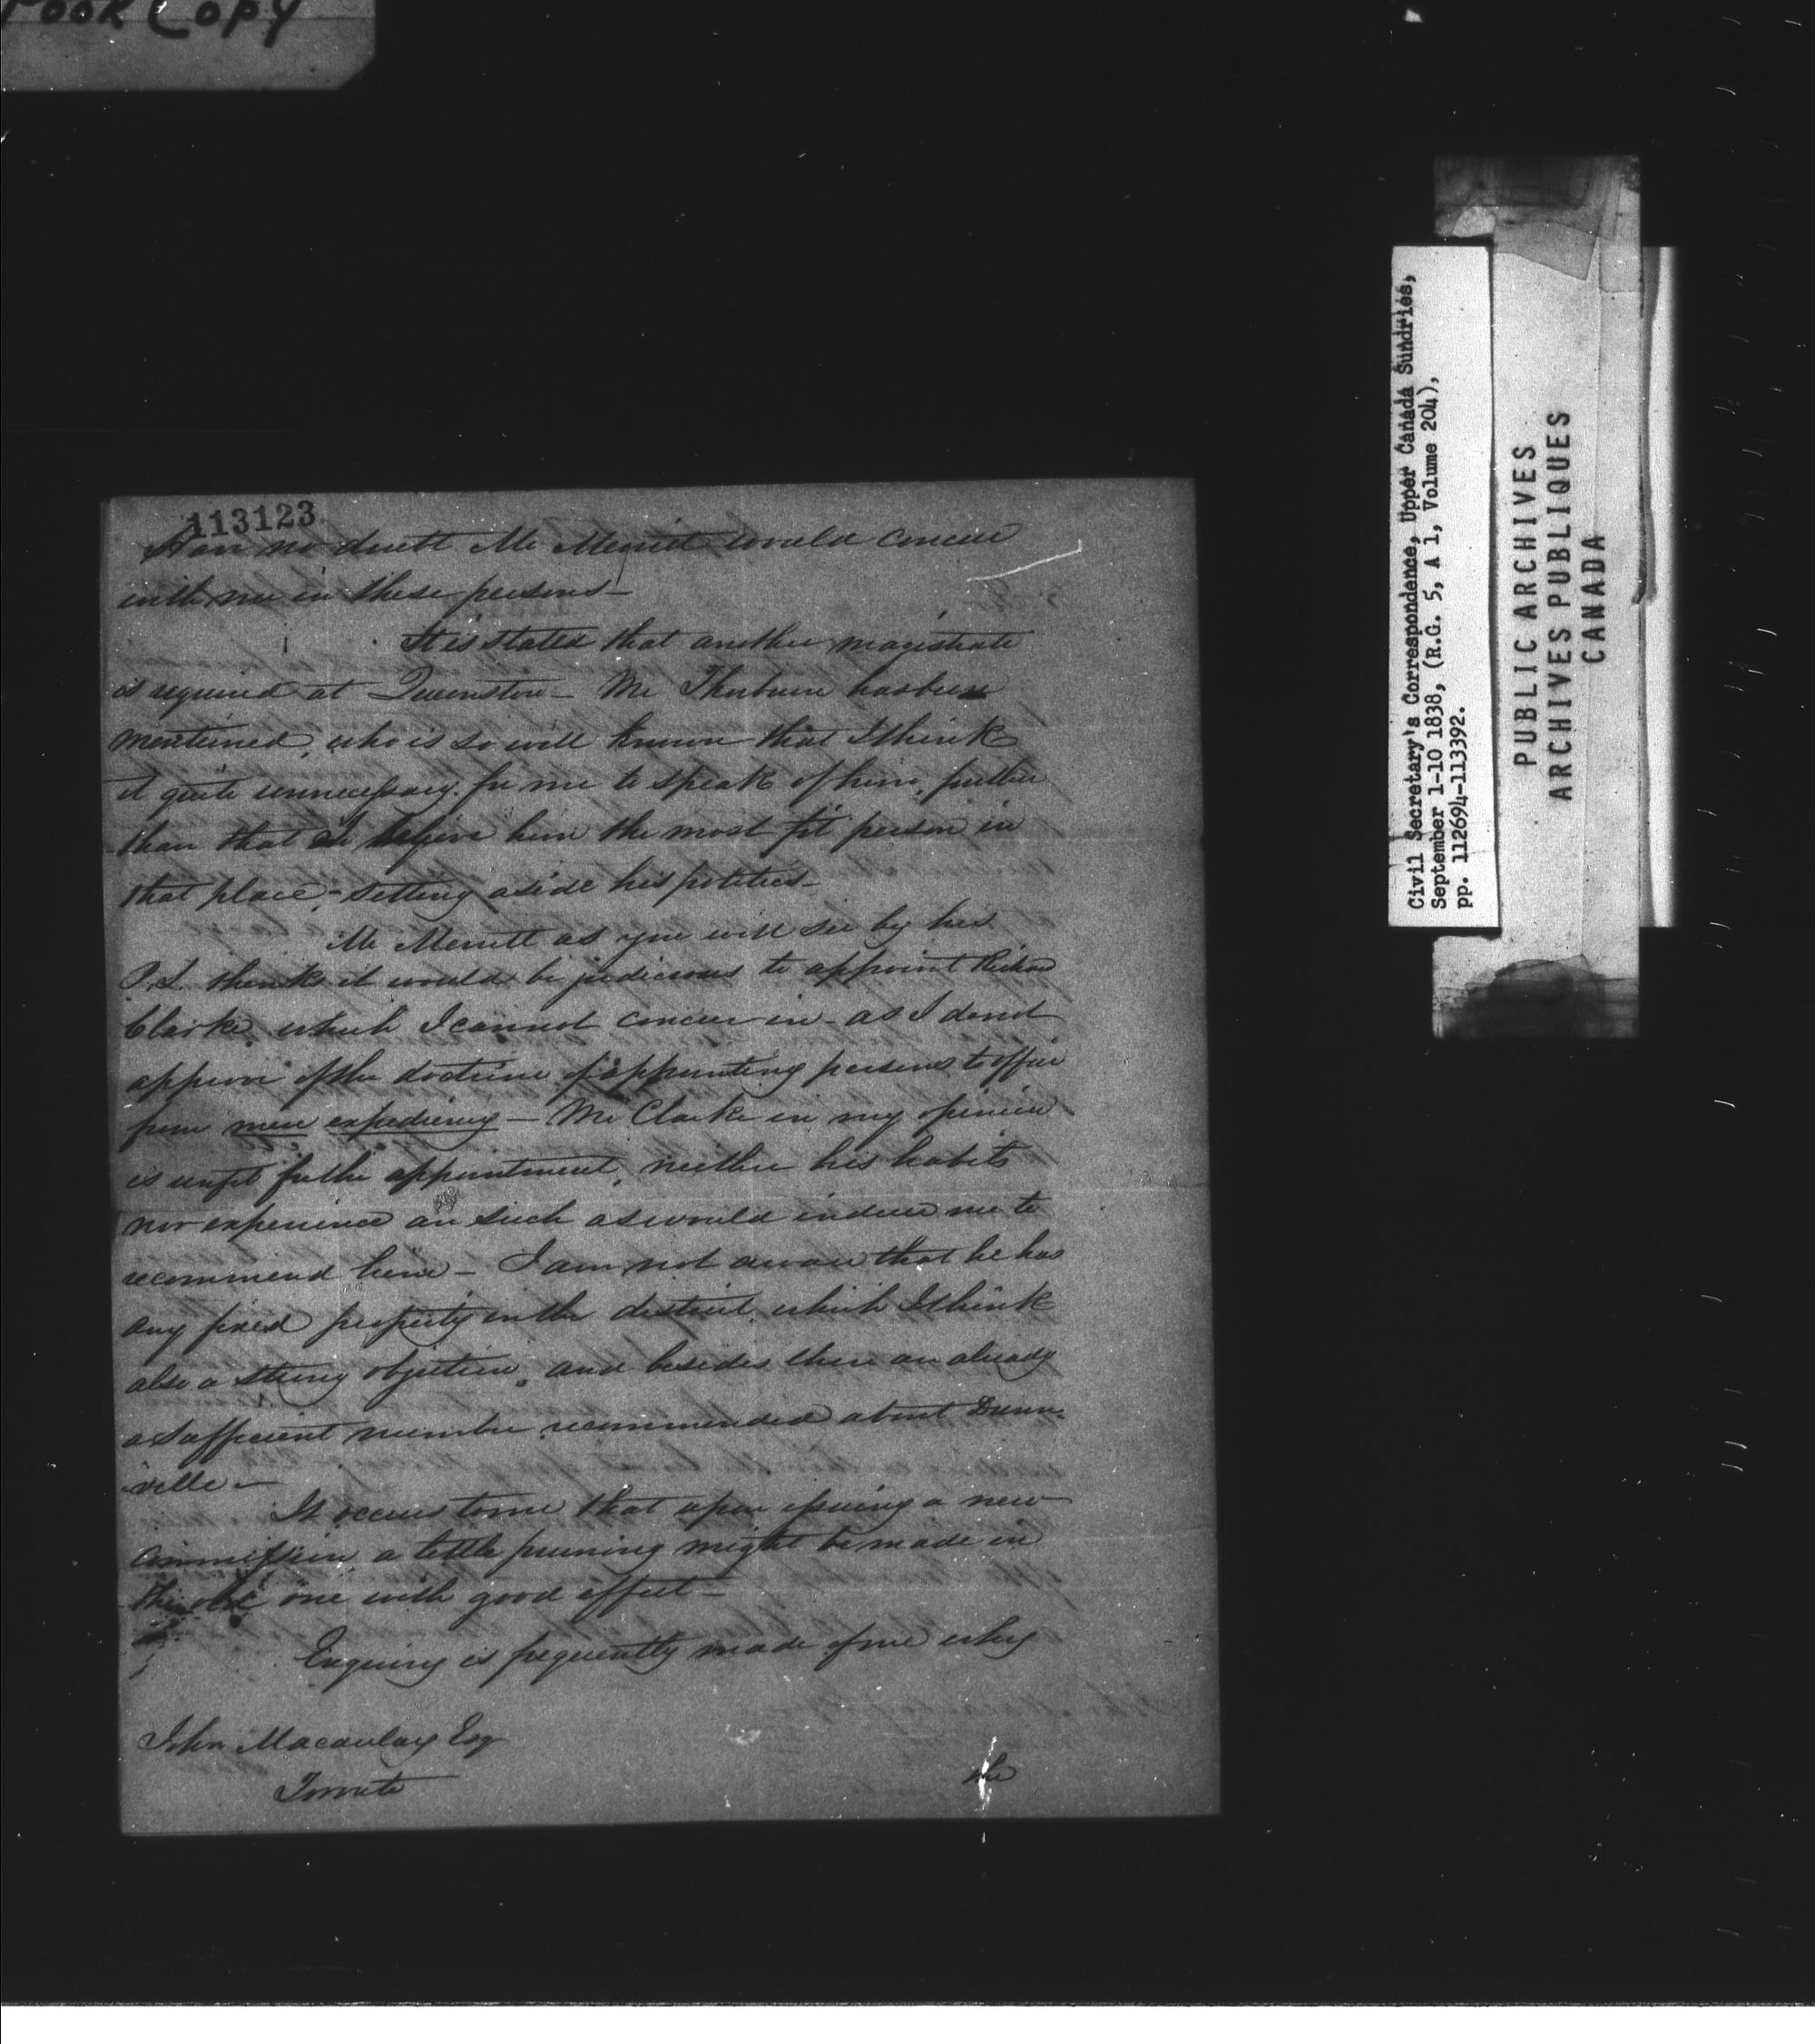 POOR COPY
113123
I have no doubt Mr Merritt would concur
with me in these persons—
It is stated that another magistrate
is required at Queenston— Mr Thorburn has been
mentioned, who is so well known that I think
it quite unnecessary for me to speak of him, further
than that I believe him the most fit person in
that place,— setting aside his politics—
Mr Merritt as you will see by his
P.S. thinks it would be judicious to appoint Richard
Clarke, which I cannot concur in— as I do not
approve of the doctrine of appointing persons to office
from mere expediency— Mr Clarke in my opinion
is unfit for the appointment, neither his habits
nor experience are such as would induce me to
recommend him— I am not aware that he has
any fixed property in the district, which I think
also a strong objection, and besides there are already
a sufficient number recommended about Dunn-
ville—
It occurs to me that upon issuing a new
Commission, a little pruning might be made in
the old one with good effect—
Enquiry is frequently made of me why
John Macaulay Esq
Toronto
the
Civil Secretary's Correspondence, Upper Canada Sundries,
September 1-10 1838, (R.G. 5, A 1, Volume 204),
pp. 112694-113392.
PUBLIC ARCHIVES
ARCHIVES PUBLIQUES
CANADA